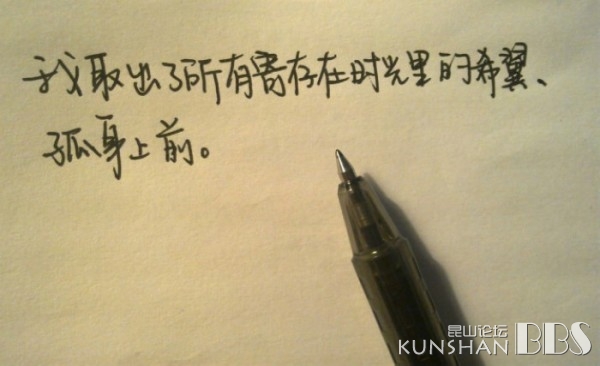 我取出了所有寄存在时光里的希翼、
孤身上前。
昆山论坛
KUNSHAN BBS